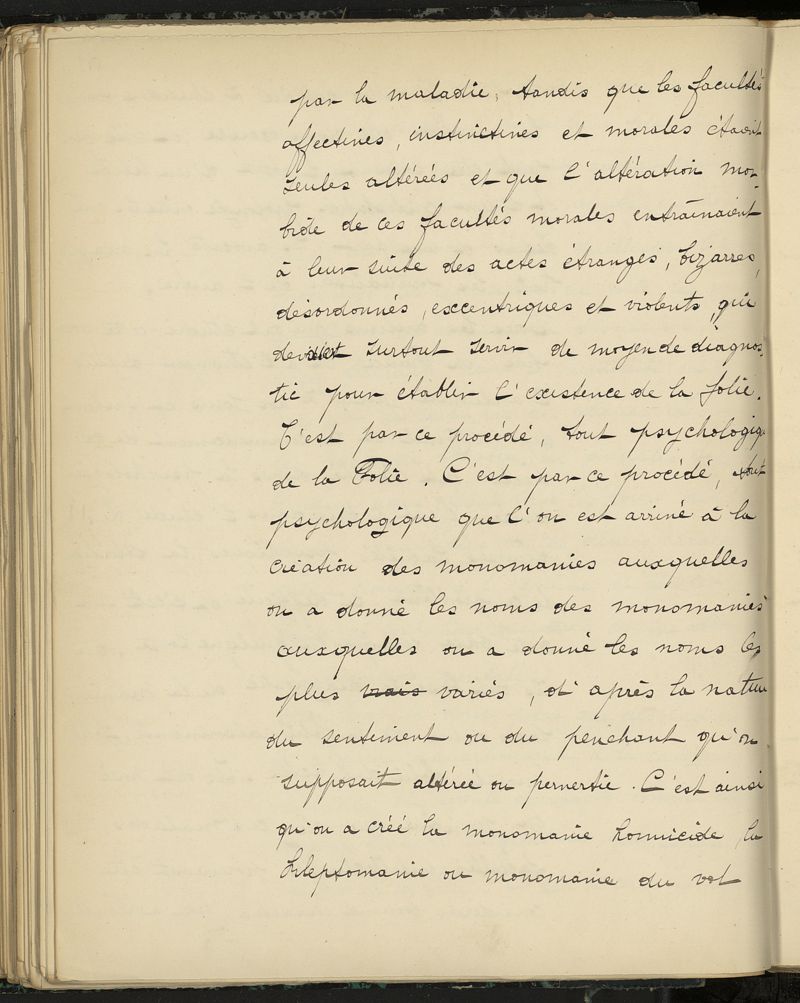 par la maladie, tandis que les facultés
affectives, instinctives et morales étaient
seules altérées et que l'altération mor-
bide de ces facultés morales entraînaient
à leur suite des actes étranges, bizarres,
désordonnés, excentriques et violents, qui
devaient surtout servir de moyen de diagnos-
tic pour établir l'existence de la folie.
C'est par ce procédé, tout psychologiq
de la Folie. C'est par ce procédé, tout
psychologique que l'on est arrivé à la
création des monomanies auxquelles
on a donné les noms des monomanies
auxquelles on a donné les noms les
plus vrais variés, d'après la nature
du sentiment ou du penchant qu'on
supposait altérée ou pervertie. C'est ainsi
qu'on a créé la monomanie homicide, la
kleptomanie ou monomanie du vol